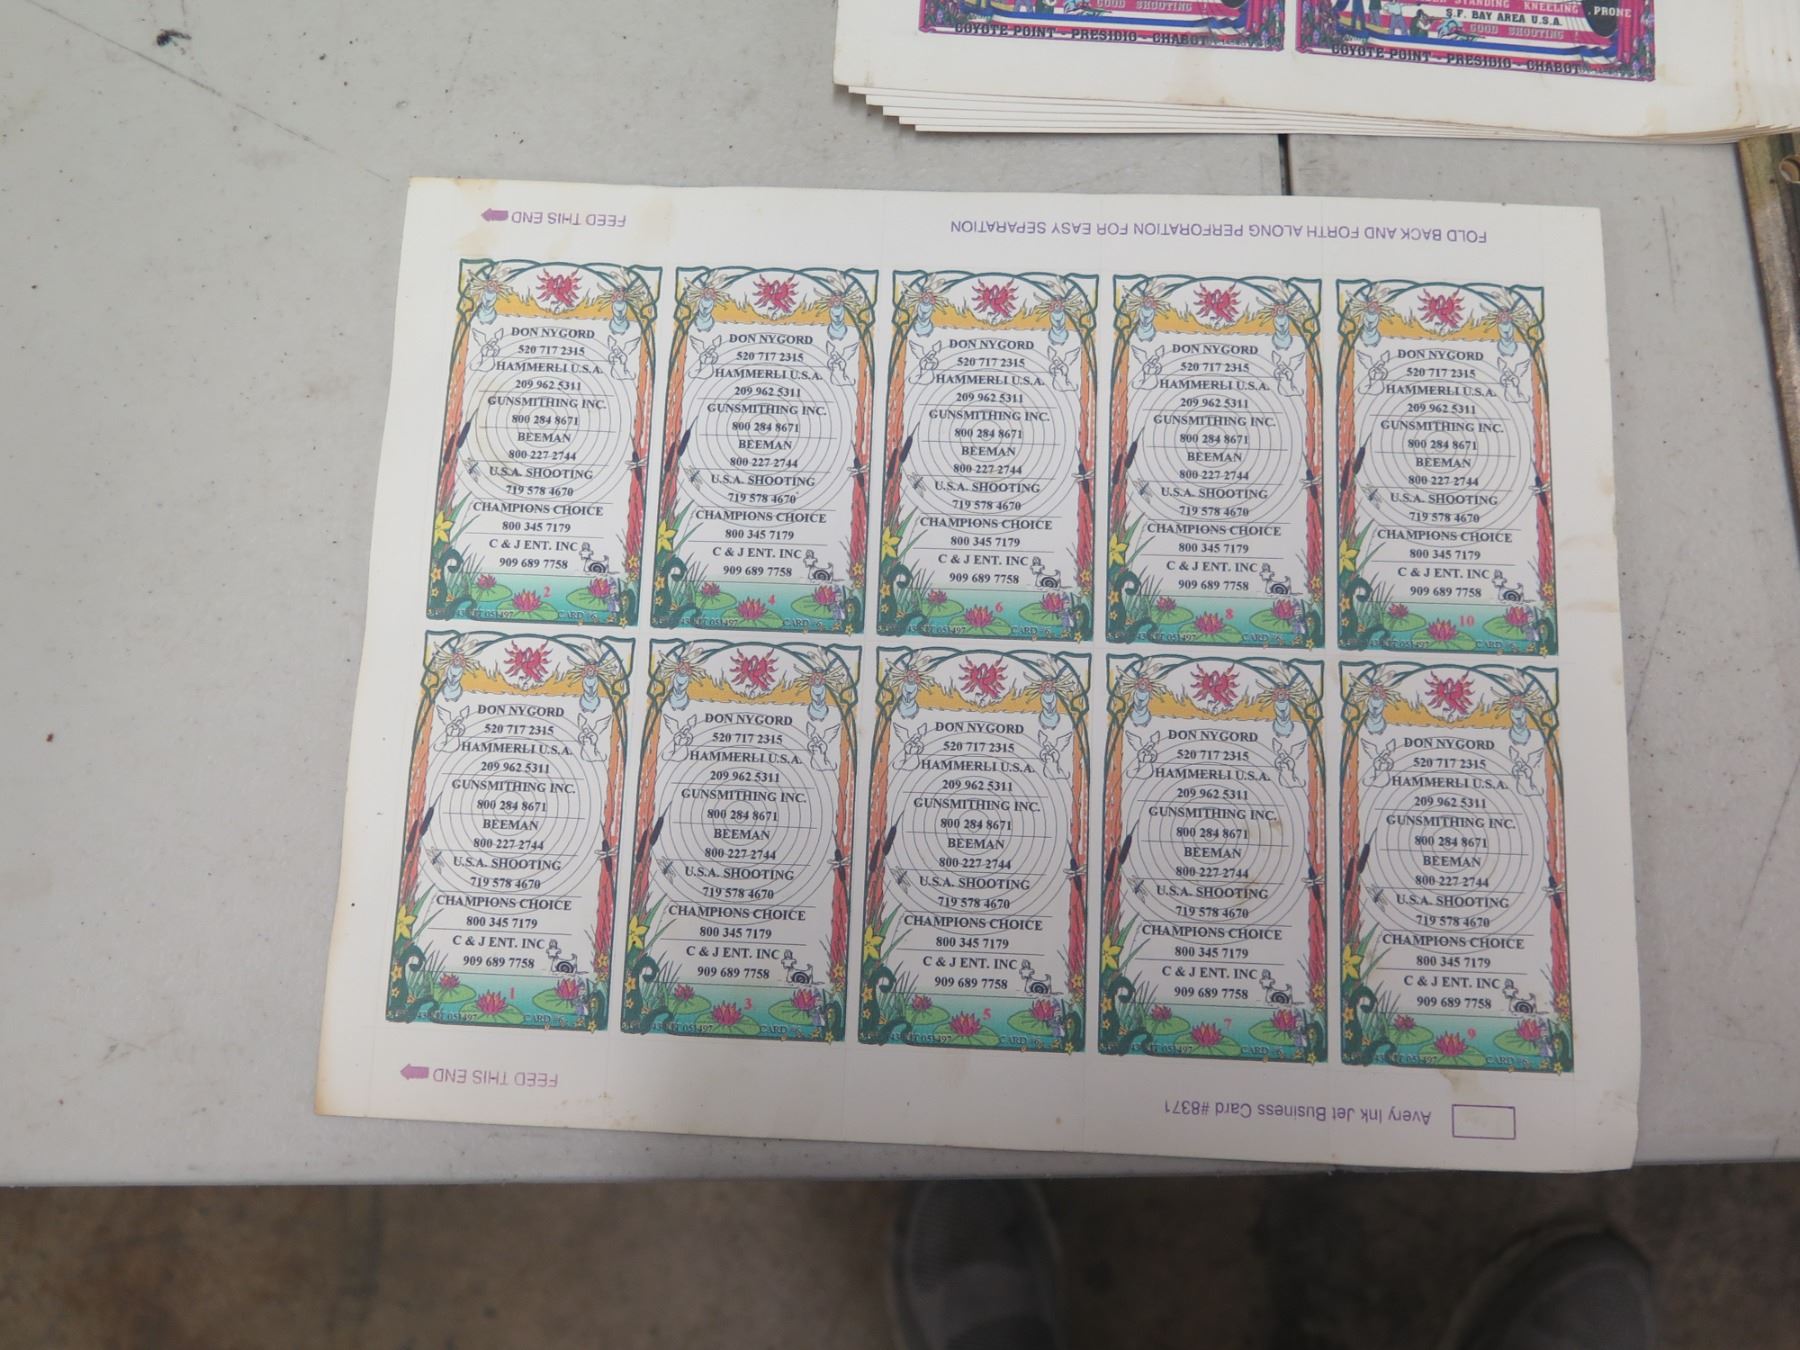 STANDING KNEELING . PRONE
S.F. BAY AREA U.S.A.
GOOD SHOOTING
GOOD SHOOTING
COYOTE POINT - PRESIDIO - CHABOT
COYOTE POINT - PRESIDIO - CHABOT
FEED THIS END
FOLD BACK AND FORTH ALONG PERFORATION FOR EASY SEPARATION
DON NYGORD
520 717 2315
HAMMERLI U.S.A.
209 962 5311
GUNSMITHING INC.
800 284 8671
BEEMAN
800 227 2744
U.S.A. SHOOTING
719 578 4670
CHAMPIONS CHOICE
800 345 7179
C & J ENT. INC
909 689 7758
2
051497 CARD #6
DON NYGORD
520 717 2315
HAMMERLI U.S.A.
209 962 5311
GUNSMITHING INC.
800 284 8671
BEEMAN
800 227 2744
U.S.A. SHOOTING
719 578 4670
CHAMPIONS CHOICE
800 345 7179
C & J ENT. INC
909 689 7758
4
051497 CARD #6
DON NYGORD
520 717 2315
HAMMERLI U.S.A.
209 962 5311
GUNSMITHING INC.
800 284 8671
BEEMAN
800 227 2744
U.S.A. SHOOTING
719 578 4670
CHAMPIONS CHOICE
800 345 7179
C & J ENT. INC
909 689 7758
6
051497 CARD #6
DON NYGORD
520 717 2315
HAMMERLI U.S.A.
209 962 5311
GUNSMITHING INC.
800 284 8671
BEEMAN
800 227 2744
U.S.A. SHOOTING
719 578 4670
CHAMPIONS CHOICE
800 345 7179
C & J ENT. INC
909 689 7758
8
051497 CARD #6
DON NYGORD
520 717 2315
HAMMERLI U.S.A.
209 962 5311
GUNSMITHING INC.
800 284 8671
BEEMAN
800 227 2744
U.S.A. SHOOTING
719 578 4670
CHAMPIONS CHOICE
800 345 7179
C & J ENT. INC
909 689 7758
10
051497 CARD #6
DON NYGORD
520 717 2315
HAMMERLI U.S.A.
209 962 5311
GUNSMITHING INC.
800 284 8671
BEEMAN
800 227 2744
U.S.A. SHOOTING
719 578 4670
CHAMPIONS CHOICE
800 345 7179
C & J ENT. INC
909 689 7758
1
051497 CARD #6
DON NYGORD
520 717 2315
HAMMERLI U.S.A.
209 962 5311
GUNSMITHING INC.
800 284 8671
BEEMAN
800 227 2744
U.S.A. SHOOTING
719 578 4670
CHAMPIONS CHOICE
800 345 7179
C & J ENT. INC
909 689 7758
3
051497 CARD #6
DON NYGORD
520 717 2315
HAMMERLI U.S.A.
209 962 5311
GUNSMITHING INC.
800 284 8671
BEEMAN
800 227 2744
U.S.A. SHOOTING
719 578 4670
CHAMPIONS CHOICE
800 345 7179
C & J ENT. INC
909 689 7758
5
051497 CARD #6
DON NYGORD
520 717 2315
HAMMERLI U.S.A.
209 962 5311
GUNSMITHING INC.
800 284 8671
BEEMAN
800 227 2744
U.S.A. SHOOTING
719 578 4670
CHAMPIONS CHOICE
800 345 7179
C & J ENT. INC
909 689 7758
7
051497 CARD #6
DON NYGORD
520 717 2315
HAMMERLI U.S.A.
209 962 5311
GUNSMITHING INC.
800 284 8671
BEEMAN
800 227 2744
U.S.A. SHOOTING
719 578 4670
CHAMPIONS CHOICE
800 345 7179
C & J ENT. INC
909 689 7758
9
051497 CARD #6
FEED THIS END
Avery Ink Jet Business Card #8371